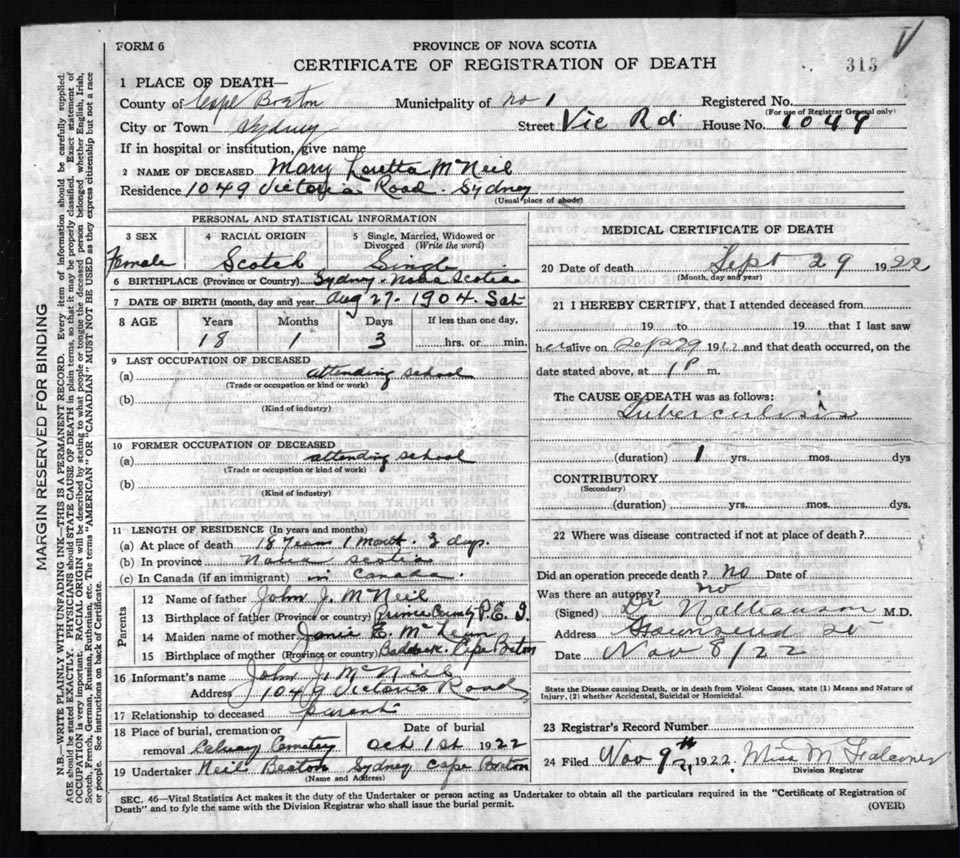 FORM 6
PROVINCE OF NOVA SCOTIA
CERTIFICATE OF REGISTRATION OF DEATH
313
1 PLACE OF DEATH—
County of Cape Breton Municipality of No 1 Registered No.
(For use of Registrar General only)
City or Town Sydney Street Vic Rd House No. 1049
If in hospital or institution, give name
2 NAME OF DECEASED Mary Loretta McNeil
Residence 1049 Victoria Road. Sydney
(Usual place of abode)
PERSONAL AND STATISTICAL INFORMATION
3 SEX 4 RACIAL ORIGIN 5 Single, Married, Widowed or Divorced (Write the word)
Female Scotch Single
6 BIRTHPLACE (Province or Country) Sydney. Nova Scotia
7 DATE OF BIRTH (month, day and year) Aug 27. 1904. Sat.
8 AGE Years Months Days If less than one day,
18 1 3 hrs. or min.
9 LAST OCCUPATION OF DECEASED
(a) attending school
(Trade or occupation or kind of work)
(b)
(Kind of industry)
10 FORMER OCCUPATION OF DECEASED
(a) attending school
(Trade or occupation or kind of work)
(b)
(Kind of industry)
11 LENGTH OF RESIDENCE (In years and months)
(a) At place of death 18 Years 1 Month. 3 days.
(b) In province Nova Scotia
(c) In Canada (if an immigrant) in Canada.
Parents
12 Name of father John J. McNeil
13 Birthplace of father (Province or country) Prince County P.E.I.
14 Maiden name of mother E. McLean
15 Birthplace of mother (Province or country) Baddeck. Cape Breton
16 Informant's name John J. McNeil
Address 1049 Victoria Road
17 Relationship to deceased parent
18 Place of burial, cremation or removal Calvary Cemetery Date of burial Oct 1st 1922
19 Undertaker Neil Beaton Sydney Cape Breton
(Name and Address)
MEDICAL CERTIFICATE OF DEATH
20 Date of death Sept 29 1922
(Month, day and year)
21 I HEREBY CERTIFY, that I attended deceased from
19 to 19 that I last saw
her alive on Sep 29 1922 and that death occurred, on the
date stated above, at 1 P m.
The CAUSE OF DEATH was as follows:
Tuberculosis
(duration) 1 yrs. mos. dys
CONTRIBUTORY
(Secondary)
(duration) yrs. mos. dys.
22 Where was disease contracted if not at place of death?
Did an operation precede death? no Date of
Was there an autopsy? no
(Signed) Dr Nathanson M.D.
Address Townsend St
Date Nov 8/22
State the Disease causing Death, or in death from Violent Causes, state (1) Means and Nature of
Injury, (2) whether Accidental, Suicidal or Homicidal.
23 Registrar's Record Number
24 Filed Nov 9th 1922. Miss M Falconer
Division Registrar
SEC. 46—Vital Statistics Act makes it the duty of the Undertaker or person acting as Undertaker to obtain all the particulars required in the "Certificate of Registration of
Death" and to fyle the same with the Division Registrar who shall issue the burial permit.
(OVER)
MARGIN RESERVED FOR BINDING
N.B.—WRITE PLAINLY, WITH UNFADING INK—THIS IS A PERMANENT RECORD. Every item of information should be carefully supplied.
AGE should be stated EXACTLY. PHYSICIANS should STATE CAUSE OF DEATH in plain terms, so that it may be properly classified. Exact statement of
OCCUPATION is very important. RACIAL ORIGIN will be described by stating to what people or tongue the deceased person belonged whether English, Irish,
Scotch, French, German, Russian, Ruthenian, etc. The terms "AMERICAN" OR "CANADIAN" MUST NOT BE USED as they express citizenship but not a race
or people. See instructions on back of Certificate.